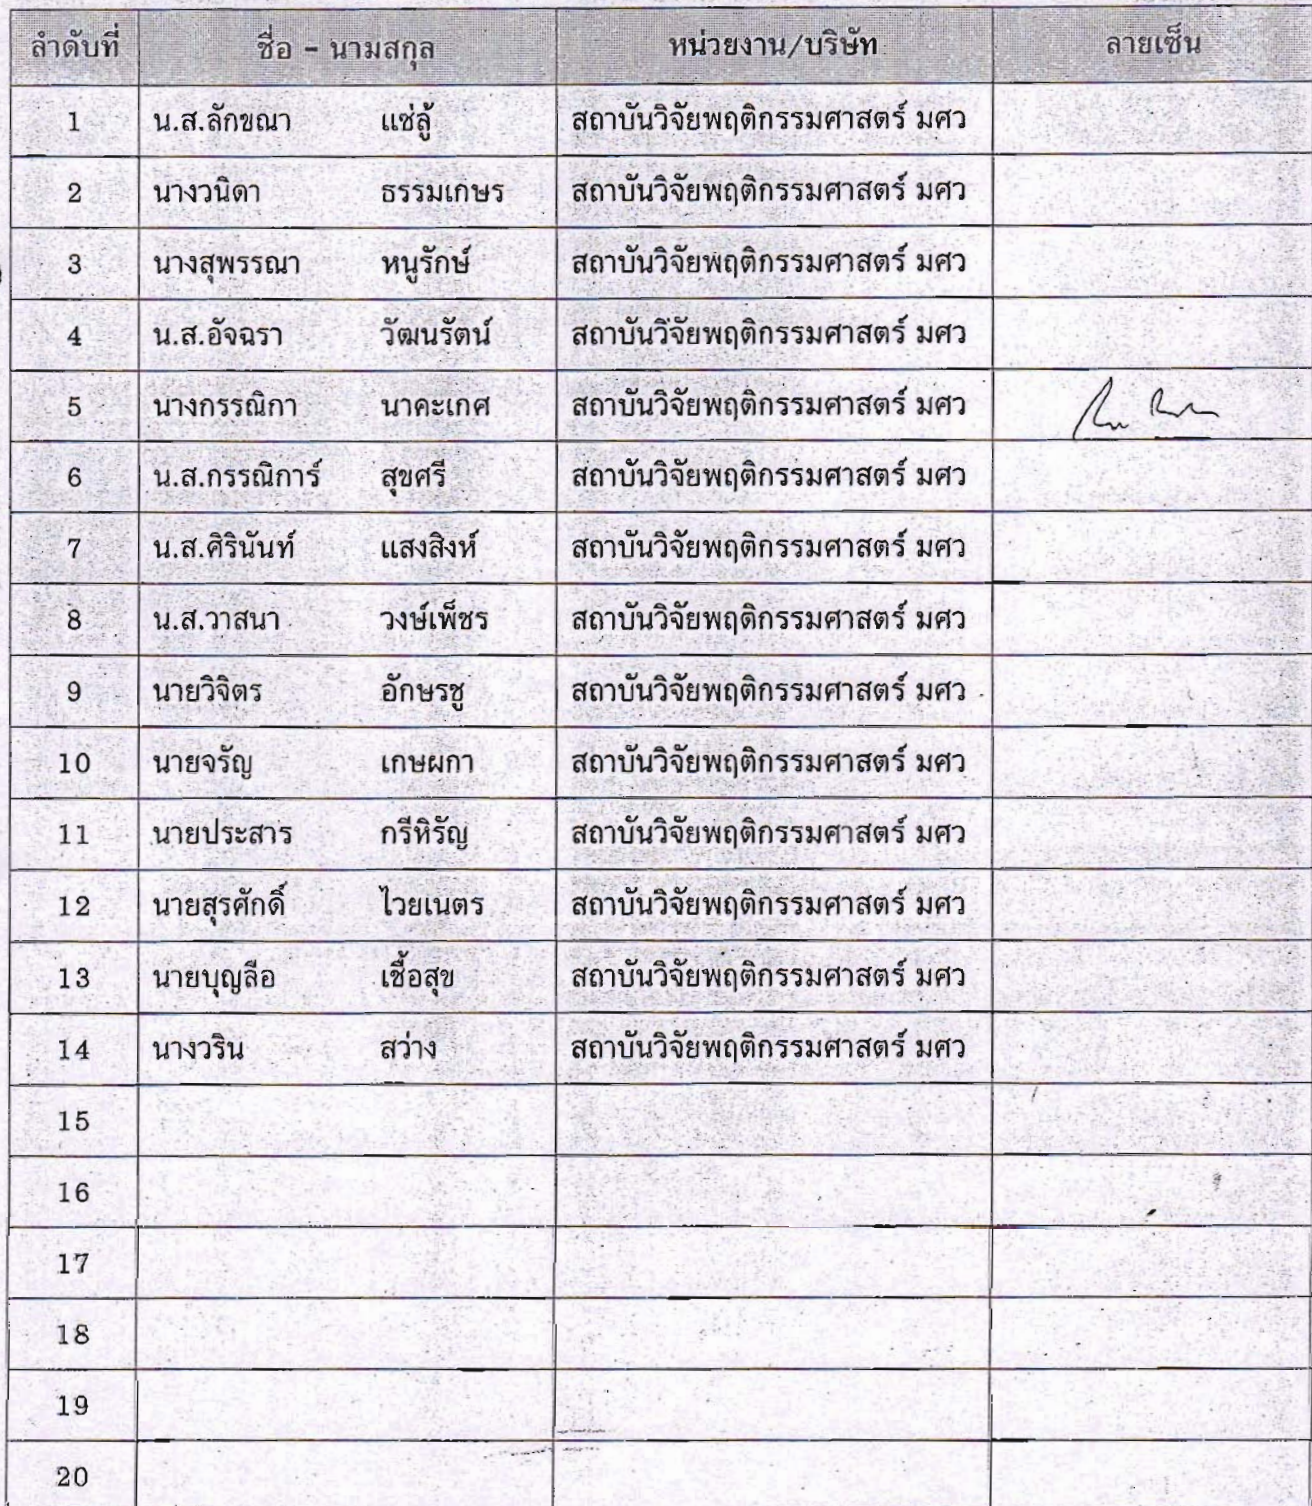 ลำดับที่ ชื่อ - นามสกุล หน่วยงาน/บริษัท ลายเซ็น
1 น.ส.ลักขณา แซ่ลู้ สถาบันวิจัยพฤติกรรมศาสตร์ มศว
2 นางวนิดา ธรรมเกษร สถาบันวิจัยพฤติกรรมศาสตร์ มศว
3 นางสุพรรณา หนูรักษ์ สถาบันวิจัยพฤติกรรมศาสตร์ มศว
4 น.ส.อัจฉรา วัฒนรัตน์ สถาบันวิจัยพฤติกรรมศาสตร์ มศว
5 นางกรรณิกา นาคะเกศ สถาบันวิจัยพฤติกรรมศาสตร์ มศว
6 น.ส.กรรณิการ์ สุขศรี สถาบันวิจัยพฤติกรรมศาสตร์ มศว
7 น.ส.ศิรินันท์ แสงสิงห์ สถาบันวิจัยพฤติกรรมศาสตร์ มศว
8 น.ส.วาสนา วงษ์เพ็ชร สถาบันวิจัยพฤติกรรมศาสตร์ มศว
9 นายวิจิตร อักษรชู สถาบันวิจัยพฤติกรรมศาสตร์ มศว
10 นายจรัญ เกษผกา สถาบันวิจัยพฤติกรรมศาสตร์ มศว
11 นายประสาร กรีหิรัญ สถาบันวิจัยพฤติกรรมศาสตร์ มศว
12 นายสุรศักดิ์ ไวยเนตร สถาบันวิจัยพฤติกรรมศาสตร์ มศว
13 นายบุญลือ เชื้อสุข สถาบันวิจัยพฤติกรรมศาสตร์ มศว
14 นางวริน สว่าง สถาบันวิจัยพฤติกรรมศาสตร์ มศว
15
16
17
18
19
20